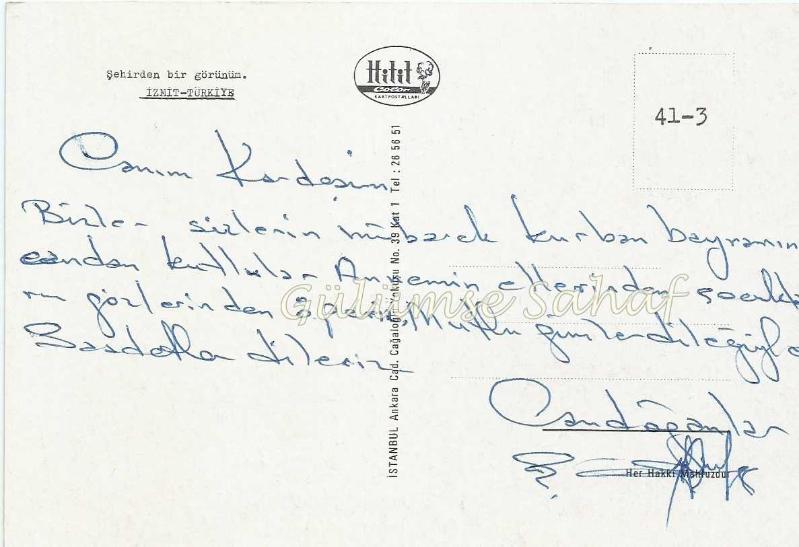 Şehirden bir görünüm.
İZMİT-TÜRKİYE
Hitit
Color
KARTPOSTALLARI
41-3
Canım Kardeşim,
Bizler sizlerin mübarek kurban bayramın
candan kutlular Annemin ellerinden
gözlerinden öperiz, Mutlu günler dileğiyle
Saadetler dileriz
Candoğanlar
Gülümse Sahaf
İSTANBUL Ankara Cad. Cağaloğlu Yokuşu No. 39 Kat 1 Tel : 26 56 51
Her Hakkı Mahfuzdur